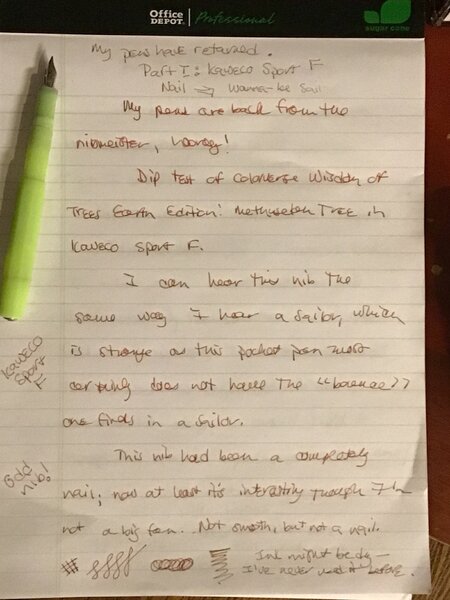 Office DEPOT Professional
sugar cane
My pens have returned.
Part I: Kaweco Sport F
Nail → Wanna-be Sail
My pens are back from the
nibmeister, hooray!
Dip test of Colorverse Wisdom of
Trees Earth Edition: Methuselah Tree in
Kaweco Sport F.
I can hear this nib the
same way I hear a Sailor, which
is strange as this pocket pen most
certainly does not have the "bounce"
one finds in a Sailor.
Kaweco
Sport
F
This nib had been a completely
nail; now at least it's interesting though I'm
not a big fan. Not smooth, but not a nail.
Odd
nib!
Ink might be dry —
I've never used it before.